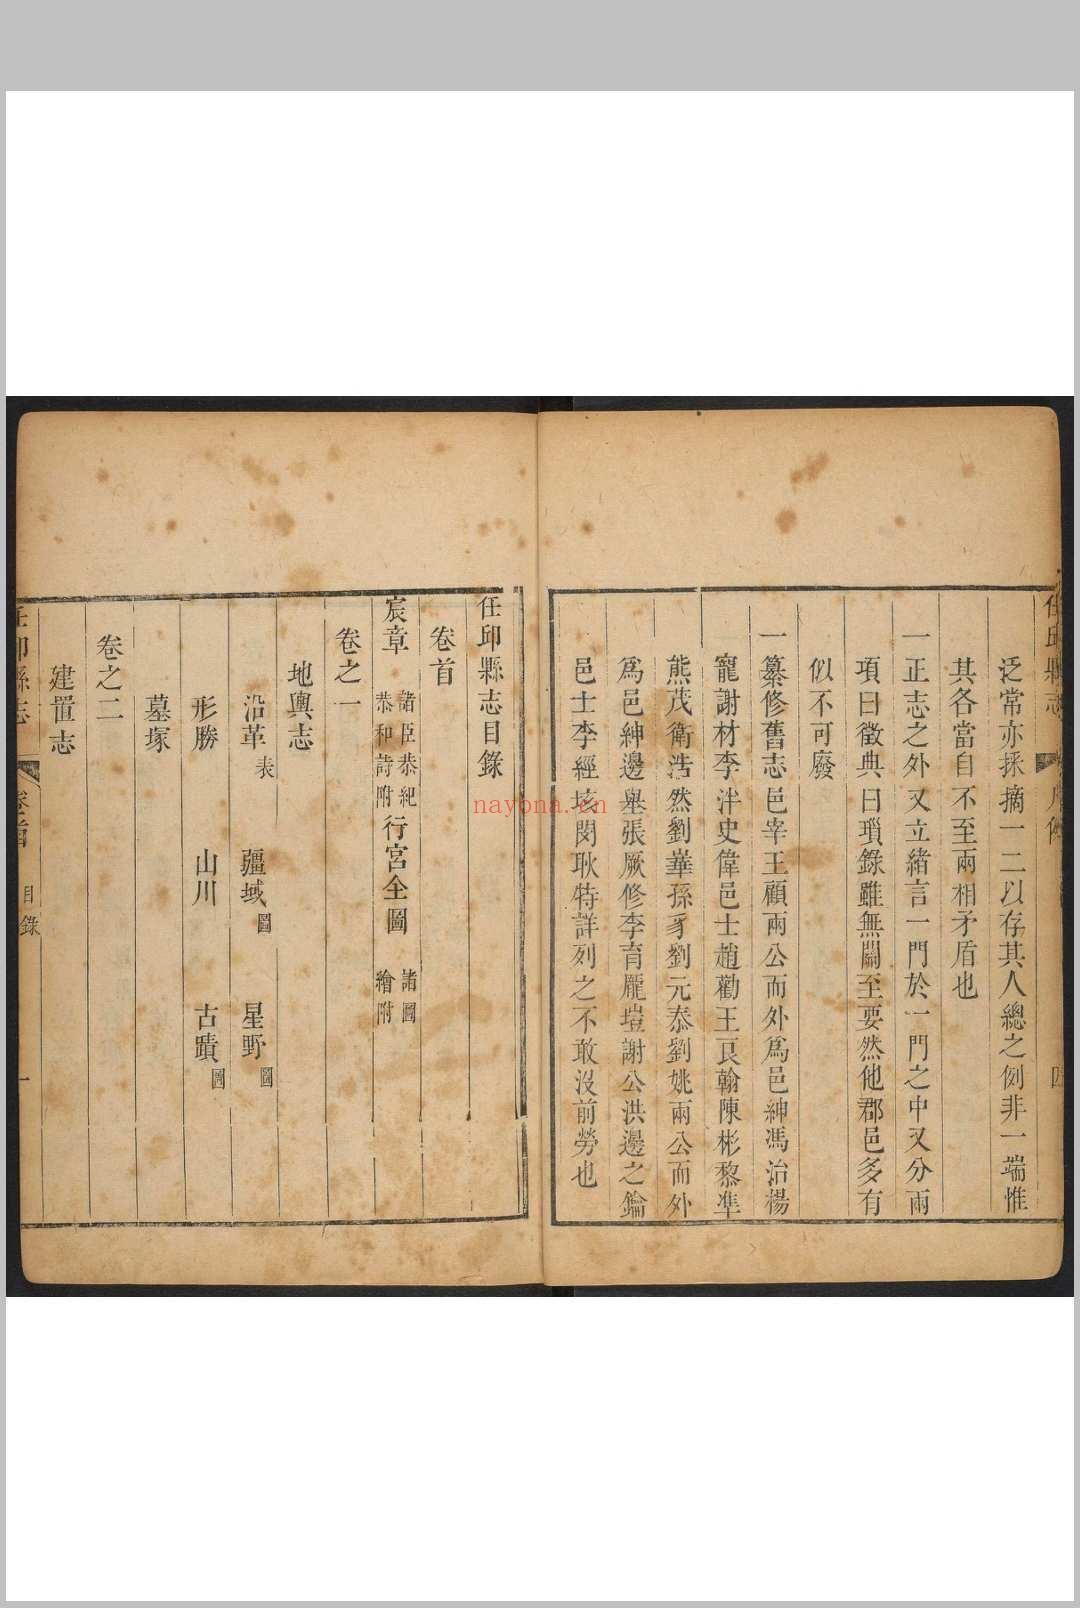 任邱縣志
泛常亦採摘一二以存其人總之例非一端惟
其各當自不至兩相矛盾也
一正志之外又立緒言一門於一門之中又分兩
項曰徵典曰瑣錄雖無關至要然他郡邑多有
似不可廢
一纂修舊志邑宰王顧兩公而外爲邑紳馮治楊
寵謝材李泮史偉邑士趙勸王良翰陳彬黎準
熊茂衛浩然劉崋孫豸劉元泰劉姚兩公而外
爲邑紳邊舉張厥修李育龐塏謝公洪邊之鑰
邑士李經垓閔耿特詳列之不敢沒前勞也
任邱縣志目錄
卷首
宸章 諸臣恭紀恭和詩附 行宮全圖 諸圖繪附
卷之一
地輿志
沿革表 疆域圖 星野圖
形勝 山川 古蹟圖
墓塚
卷之二
建置志
任邱縣志 卷首 目錄 一
nayona.cn